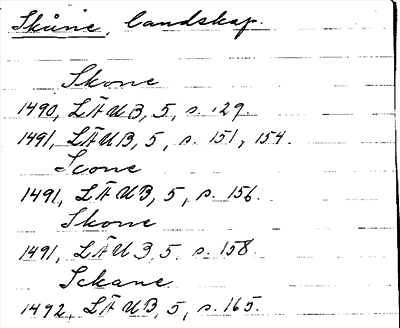 Skåne, landskap.
Skone
1490, LÄUB, 5, s. 29.
1491, LÄUB, 5, s. 151, 154.
Scone
1491, LÄUB, 5, s. 156.
Skone
1491, LÄUB, 5. s. 158
Schane
1492, LÄUB, 5, s. 165.